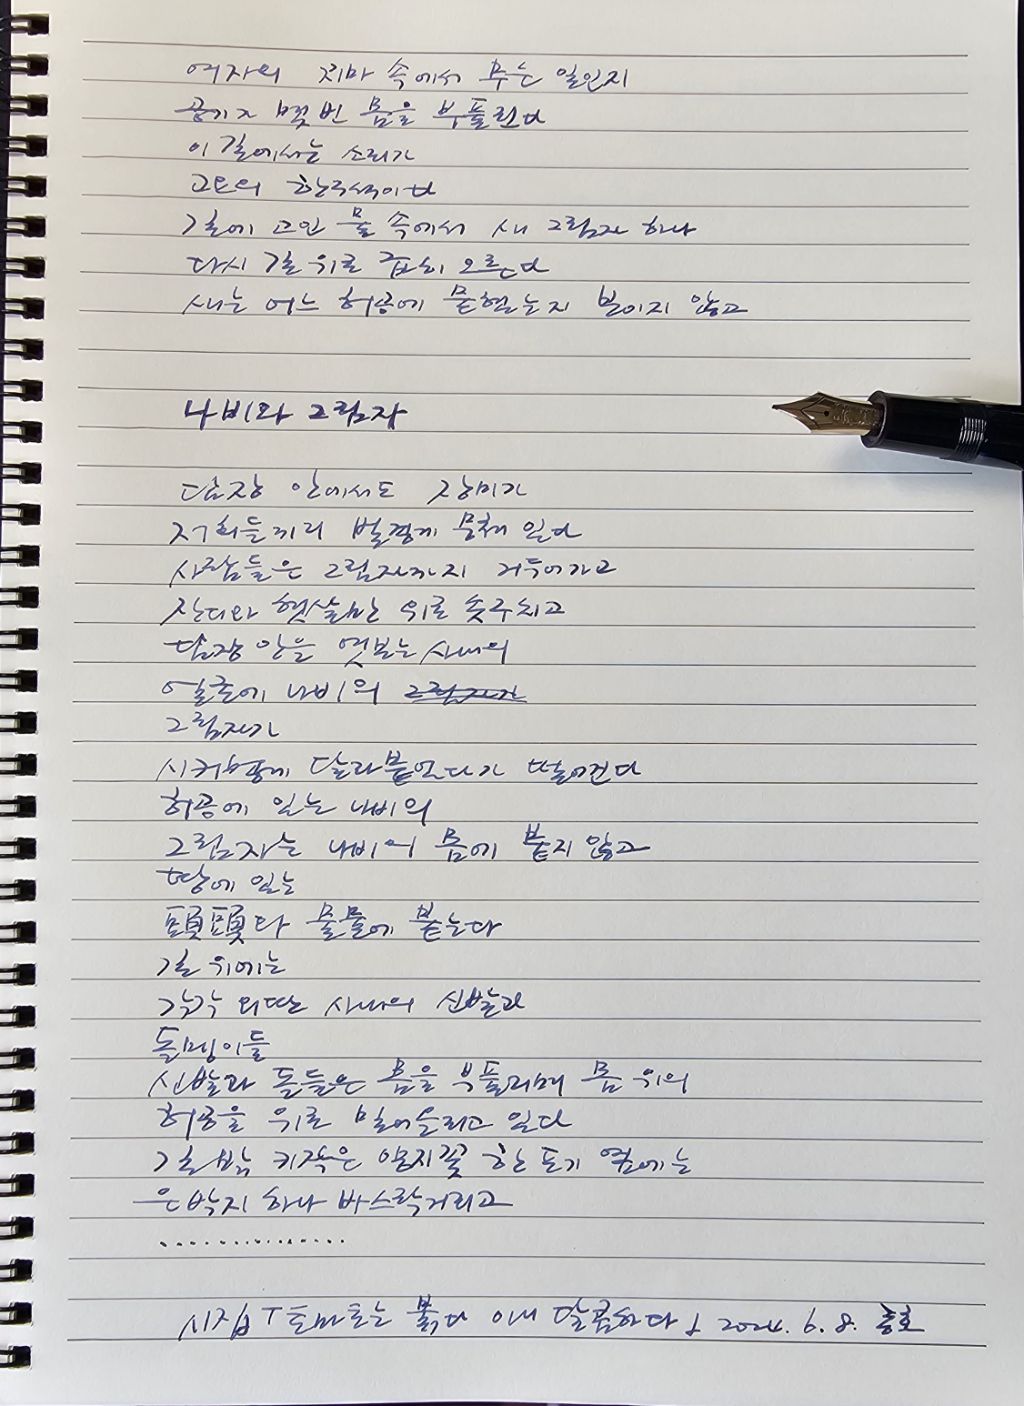 여자의 치마 속에서 무슨 일인지
공기가 몇 번 몸을 부풀린다
이 길에서는 소리가
고요의 한 구석이다
길에 고인 물 속에서 새 그림자 하나
다시 길 위로 급히 오른다
새는 어느 허공에 묻혔는지 보이지 않고
나비와 그림자
담장 안에서도 장미가
저희들끼리 벌겋게 뭉쳐 있다
사람들은 그림자까지 거두어가고
잔디와 햇살만 위로 솟구치고
담장 안을 엿보는 사내의
얼굴에 나비의
그림자가
시커멓게 달라붙었다가 떨어진다
허공에 있는 나비의
그림자는 나비의 몸에 붙지 않고
땅에 있는
頭頭와 물물에 붙는다
길 위에는
각각 외딴 사내의 신발과
돌멩이들
신발과 돌들은 몸을 부풀리며 몸 위의
허공을 위로 밀어올리고 있다
길 밖 키작은 양지꽃 한 포기 옆에는
은박지 하나 바스락거리고
................
시집 「토마토는 붉다 아니 달콤하다」 2024. 6. 8.